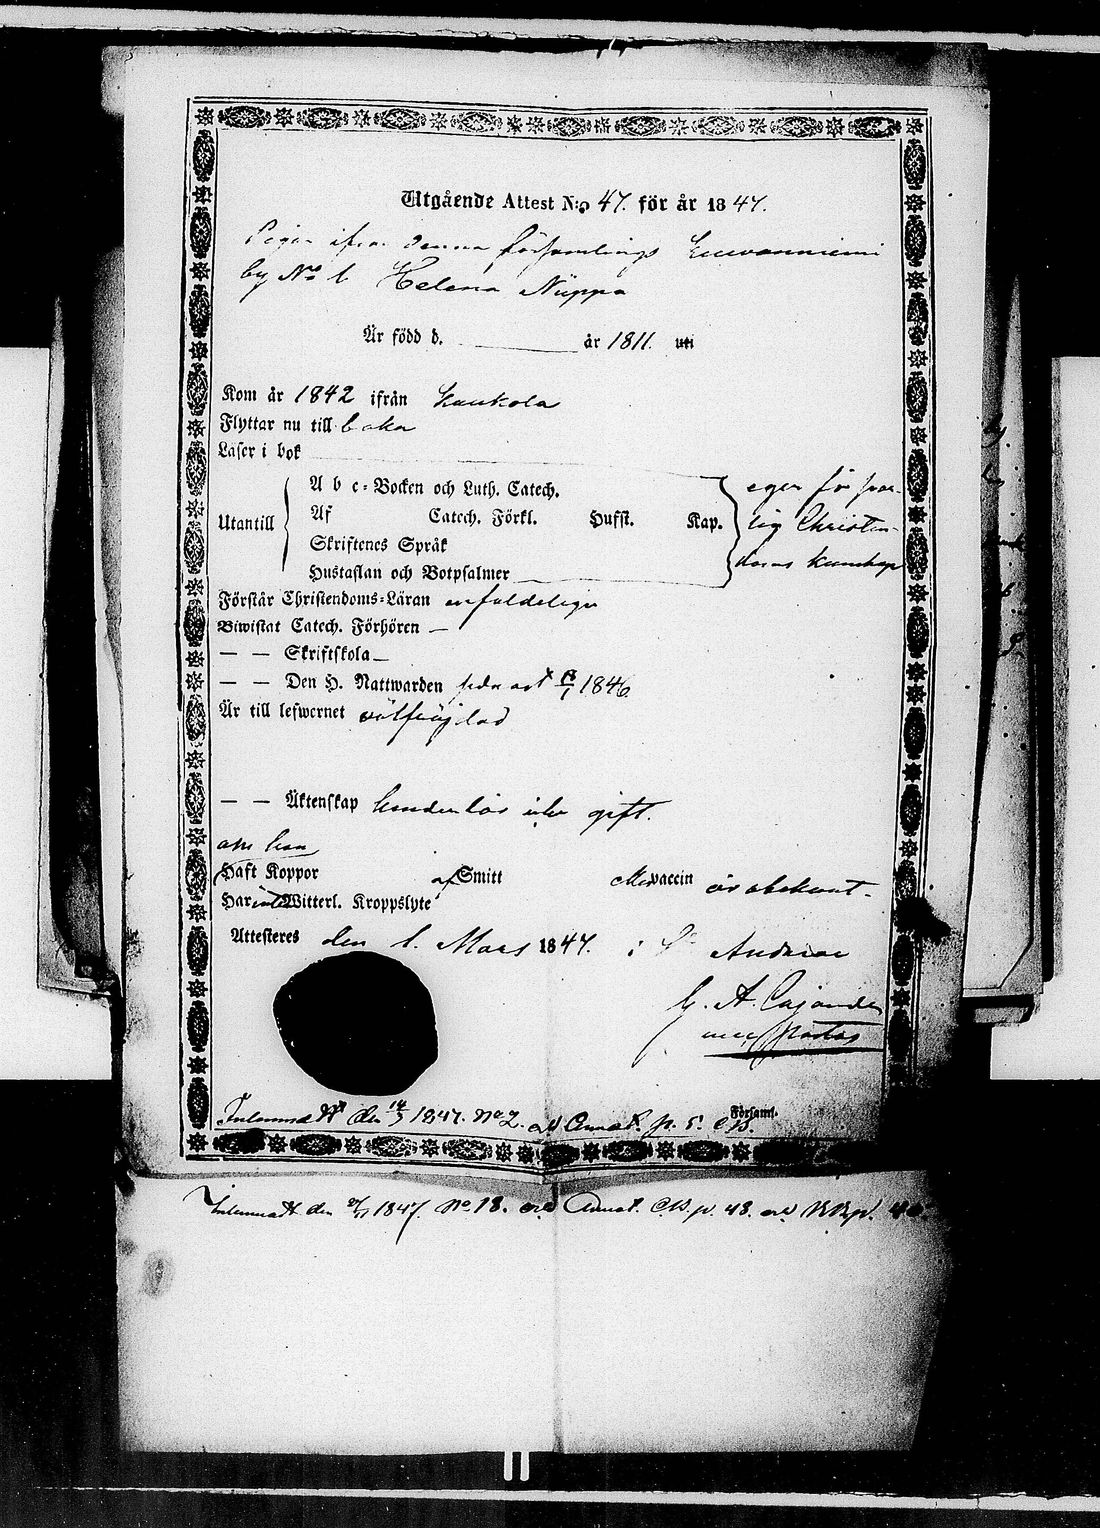 Utgående Attest N:o 47. för år 1847.
Pigan ifrån denna församlings
by No 1 Helena Nuppo
Är född d. år 1811. uti
Kom år 1842 ifrån Kaukola
Flyttar nu till baka
Läser i bok
A b c-Bocken och Luth. Catech. eger för
Utantill Af Catech. Förkl. Husf. Kap. Christen-
Skriftenes Språk
Hustaflan och Botpsalmer doms kunskap
Förstår Christendoms-Läran enfaldeligen
Biwistat Catech. Förhören —
— — Skriftskola —
— — Den H. Nattwarden sednast 1846
Är till lefwernet välfräjdad
— — Äktenskap hinderlös icke gift.
om hon
Haft Koppor af Smitt eller Vaccin är obekant.
Har Witterl. Kroppslyte
Attesteres den 1. Mars 1847. i St Andreae
G. A. Cajander
Inlemnadt den 14/3 1847. No 2. Annot. p. 5. Församl.
Inlemnadt den 1847. No 18. Annot. p. 48.